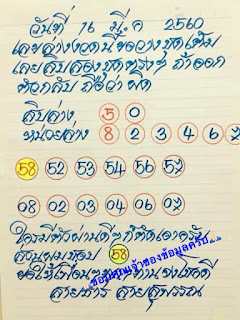 วันที่ 16 มี.ค 2560
เลขล่างงวดนี้ขอวางชุดเต็ม
เลขสิบสองชุดตรงๆ ถ้าออก
ตัวกลับ ถือว่า ผิด
สิบล่าง, 5 0
หน่วยล่าง 8 2 3 4 6 7
58 52 53 54 56 57
08 02 03 04 06 07
ใครมีตัวผ่านดีๆก็ตัดเอาครับ
ส่วนผมชอบ 58
ขอให้เพื่อนๆทุกท่านจงโชคดี
สายธาร สายสุพรรณ
ขอบคุณเจ้าของข้อมูลครับ...